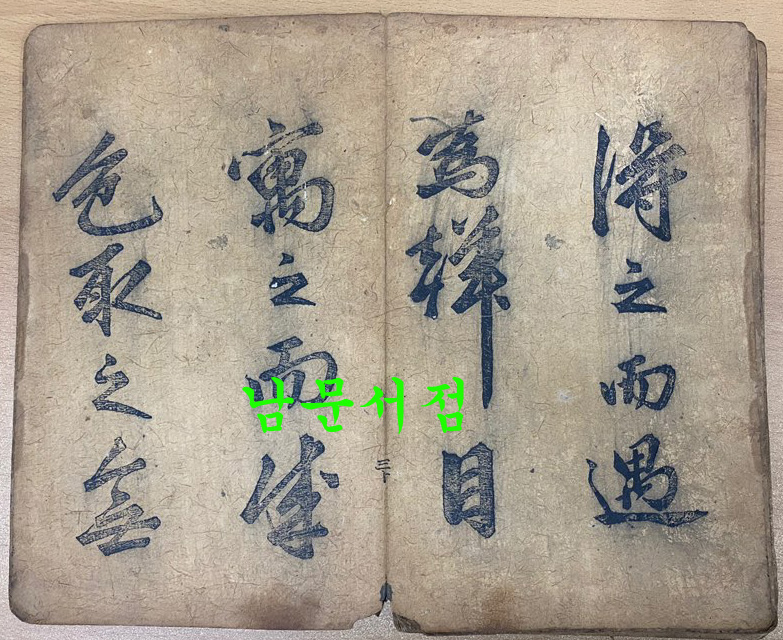 得之而遇
為聲目
寓之而成
色取之無
三十
남문서점